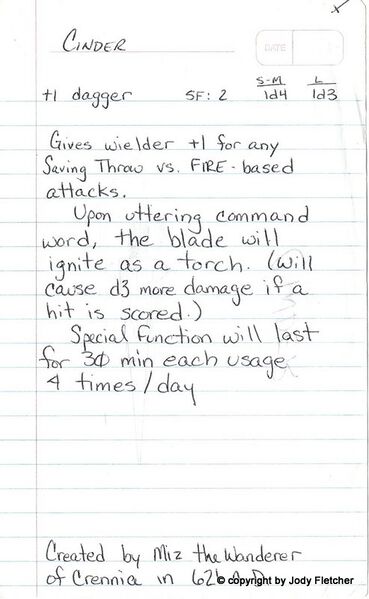 CINDER
DATE
S-M L
+1 dagger SF: 2 1d4 1d3
Gives wielder +1 for any
Saving Throw vs. FIRE-based
attacks.
Upon uttering command
word, the blade will
ignite as a torch. (Will
cause d3 more damage if a
hit is scored.)
Special Function will last
for 30 min each usage
4 times/day
Created by Miz the Wanderer
of Crennia in
© copyright by Jody Fletcher